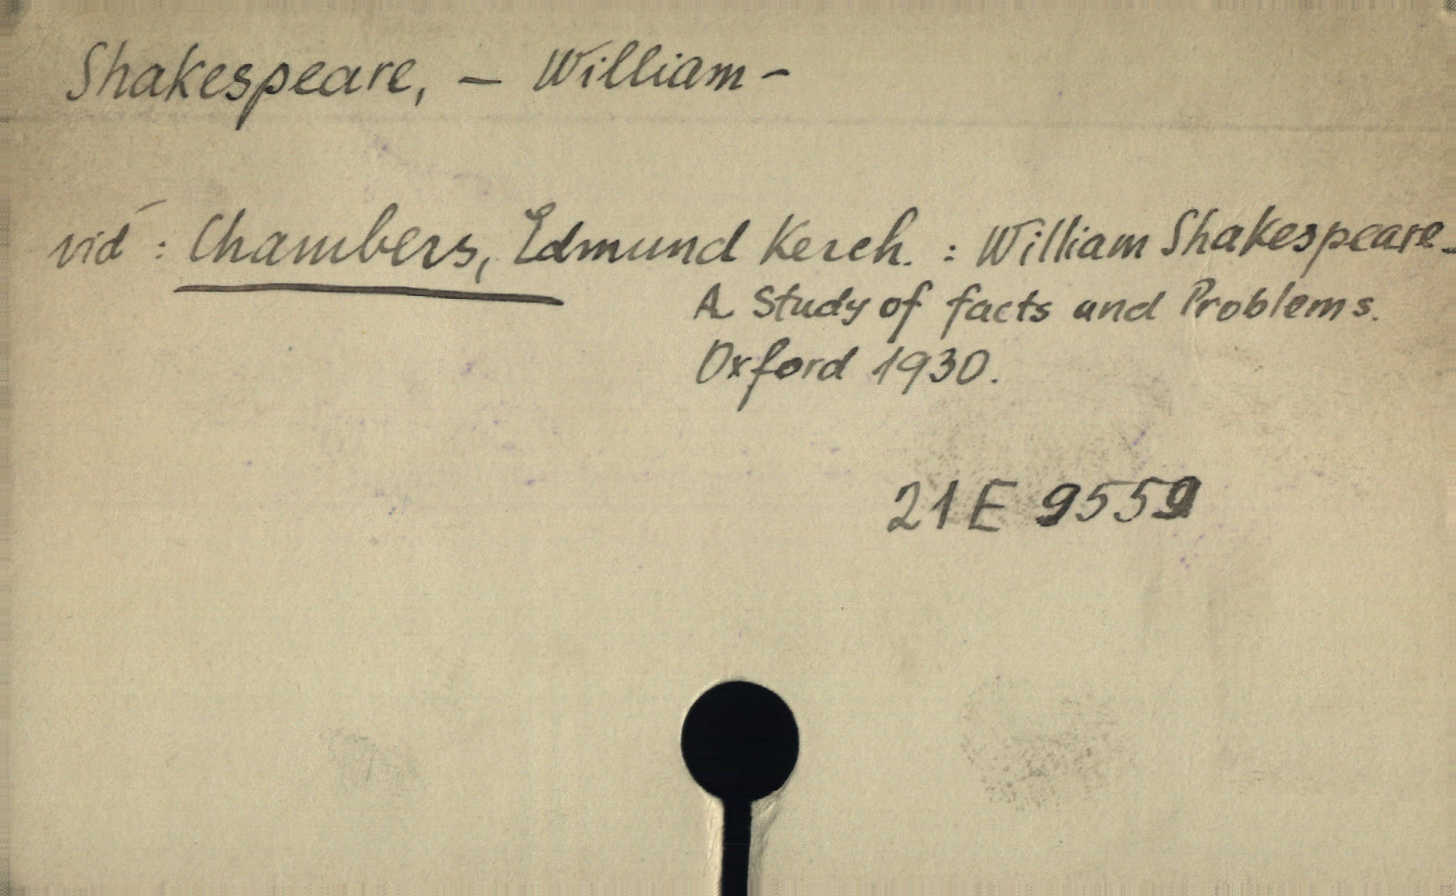 Shakespeare, – William –
vid : Chambers, Edmund Kerch. : William Shakespeare.
A Study of facts and Problems.
Oxford 1930.
21 E 9559